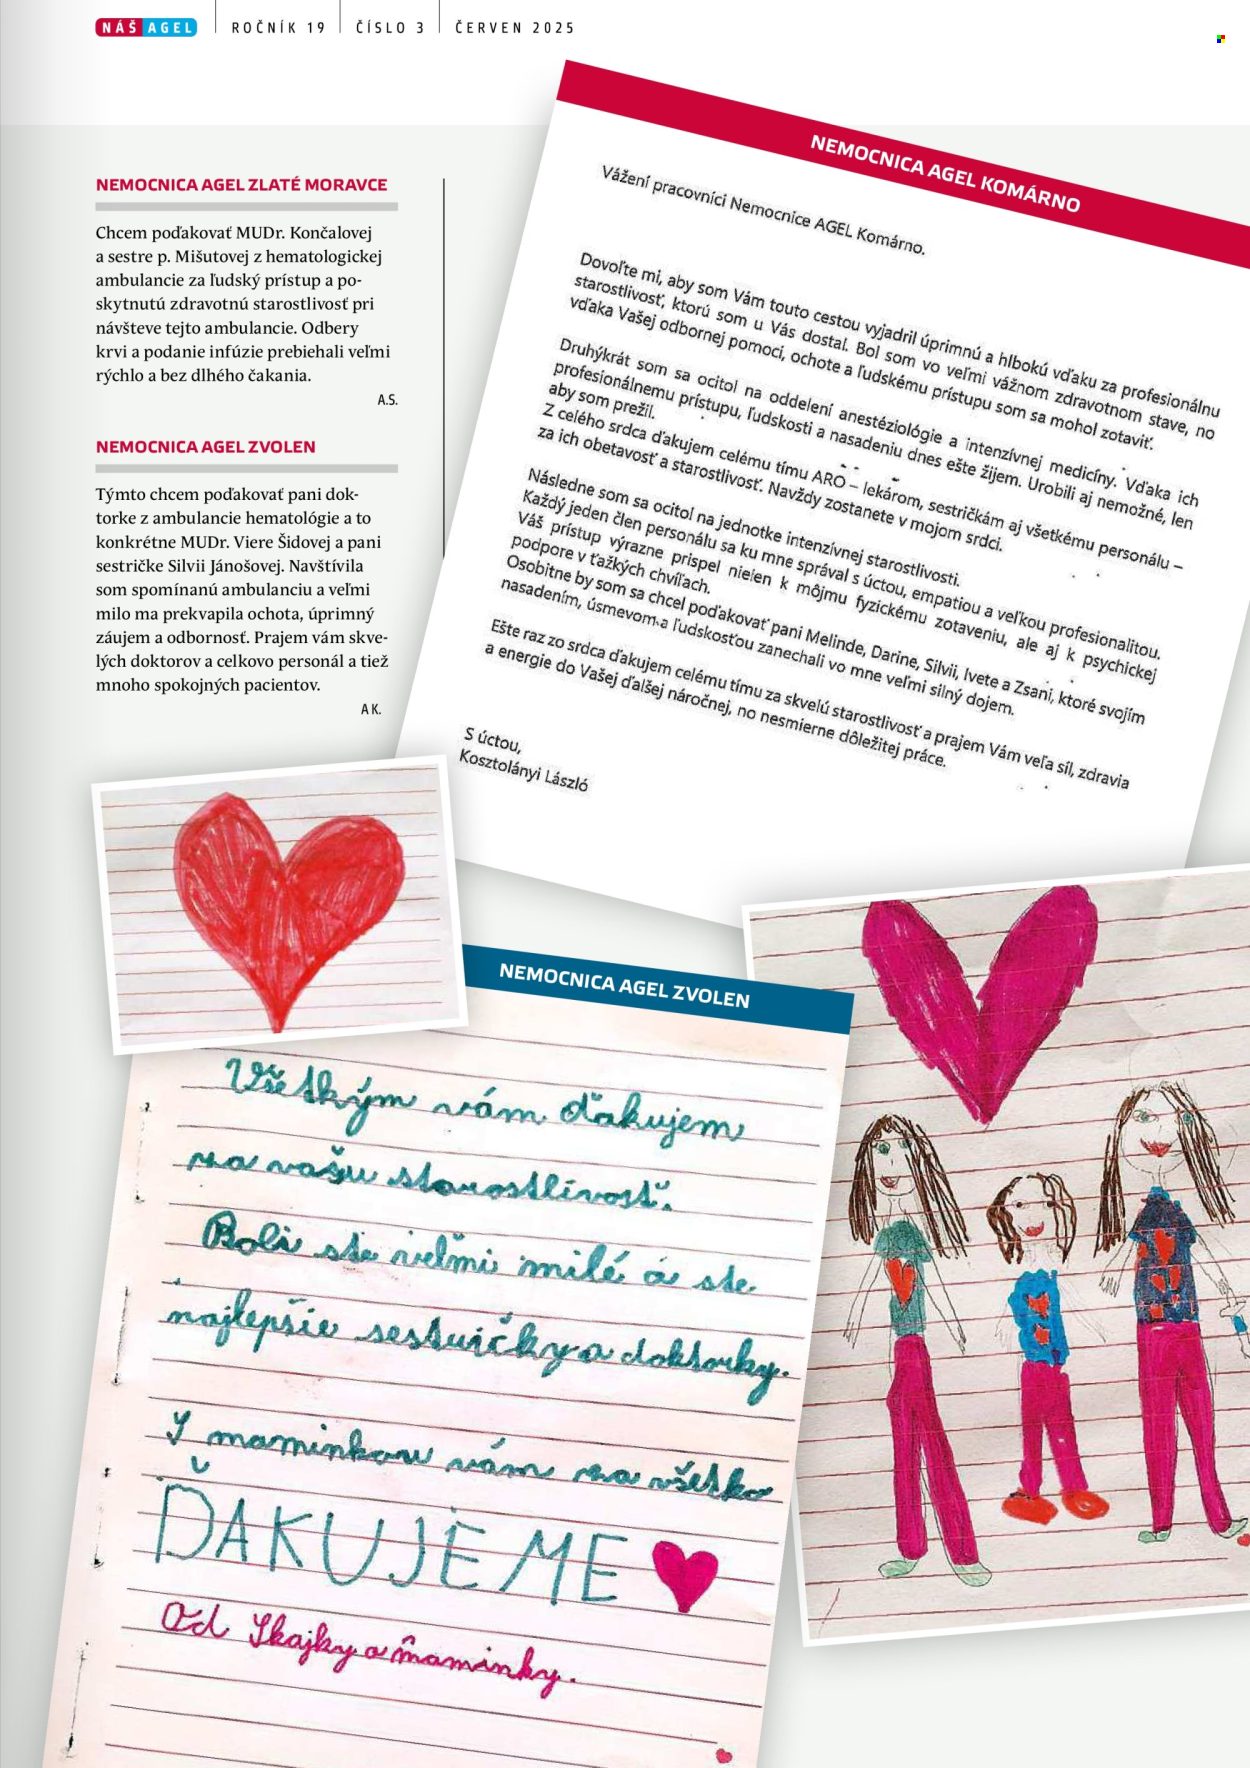 NÁŠ AGEL ROČNÍK 19 ČÍSLO 3 ČERVEN 2025
NEMOCNICA AGEL ZLATÉ MORAVCE
Chcem poďakovať MUDr. Končalovej
a sestre p. Mišutovej z hematologickej
ambulancie za ľudský prístup a po-
skytnutú zdravotnú starostlivosť pri
návšteve tejto ambulancie. Odbery
krvi a podanie infúzie prebiehali veľmi
rýchlo a bez dlhého čakania.
A.S.
NEMOCNICA AGEL ZVOLEN
Týmto chcem poďakovať pani dok-
torke z ambulancie hematológie a to
konkrétne MUDr. Viere Šidovej a pani
sestričke Silvii Jánošovej. Navštívila
som spomínanú ambulanciu a veľmi
milo ma prekvapila ochota, úprimný
záujem a odbornosť. Prajem vám skve-
lých doktorov a celkovo personál a tiež
mnoho spokojných pacientov.
A K.
NEMOCNICA AGEL KOMÁRNO
Vážení pracovníci Nemocnice AGEL Komárno.
Dovoľte mi, aby som Vám touto cestou vyjadril úprimnú a hlbokú vďaku za profesionálnu
starostlivosť, ktorú som u Vás dostal. Bol som vo veľmi vážnom zdravotnom stave, no
vďaka Vašej odbornej pomoci, ochote a ľudskému prístupu som sa mohol zotaviť.
Druhýkrát som sa ocitol na oddelení anestéziológie a intenzívnej medicíny. Vďaka ich
profesionálnemu prístupu, ľudskosti a nasadeniu dnes ešte žijem. Urobili aj nemožné, len
aby som prežil.
Z celého srdca ďakujem celému tímu ARO – lekárom, sestričkám aj všetkému personálu –
za ich obetavosť a starostlivosť. Navždy zostanete v mojom srdci.
Následne som sa ocitol na jednotke intenzívnej starostlivosti.
Každý jeden člen personálu sa ku mne správal s úctou, empatiou a veľkou profesionalitou.
Váš prístup výrazne prispel nielen k môjmu fyzickému zotaveniu, ale aj k psychickej
podpore v ťažkých chvíľach.
Osobitne by som sa chcel poďakovať pani Melinde, Darine, Silvii, Ivete a Zsani, ktoré svojím
nasadením, úsmevom a ľudskosťou zanechali vo mne veľmi silný dojem.
Ešte raz zo srdca ďakujem celému tímu za skvelú starostlivosť a prajem Vám veľa síl, zdravia
a energie do Vašej ďalšej náročnej, no nesmierne dôležitej práce.
S úctou,
Kosztolányi László
NEMOCNICA AGEL ZVOLEN
Všetkým vám ďakujem
za vašu starostlivosť.
Boli ste veľmi milé a ste
najlepšie sestričky a doktorky.
S maminkou vám za všetko
ĎAKUJEME
Od Skajky a maminky.